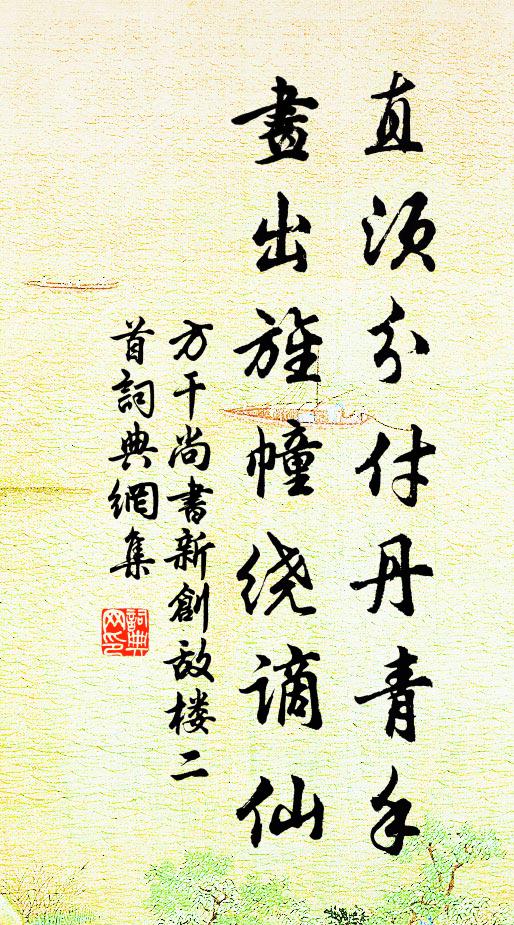 直须分付丹青手
畫出旌幢绕谪仙
方干尚書新創敌楼二
首詞典網集
詞典
网印